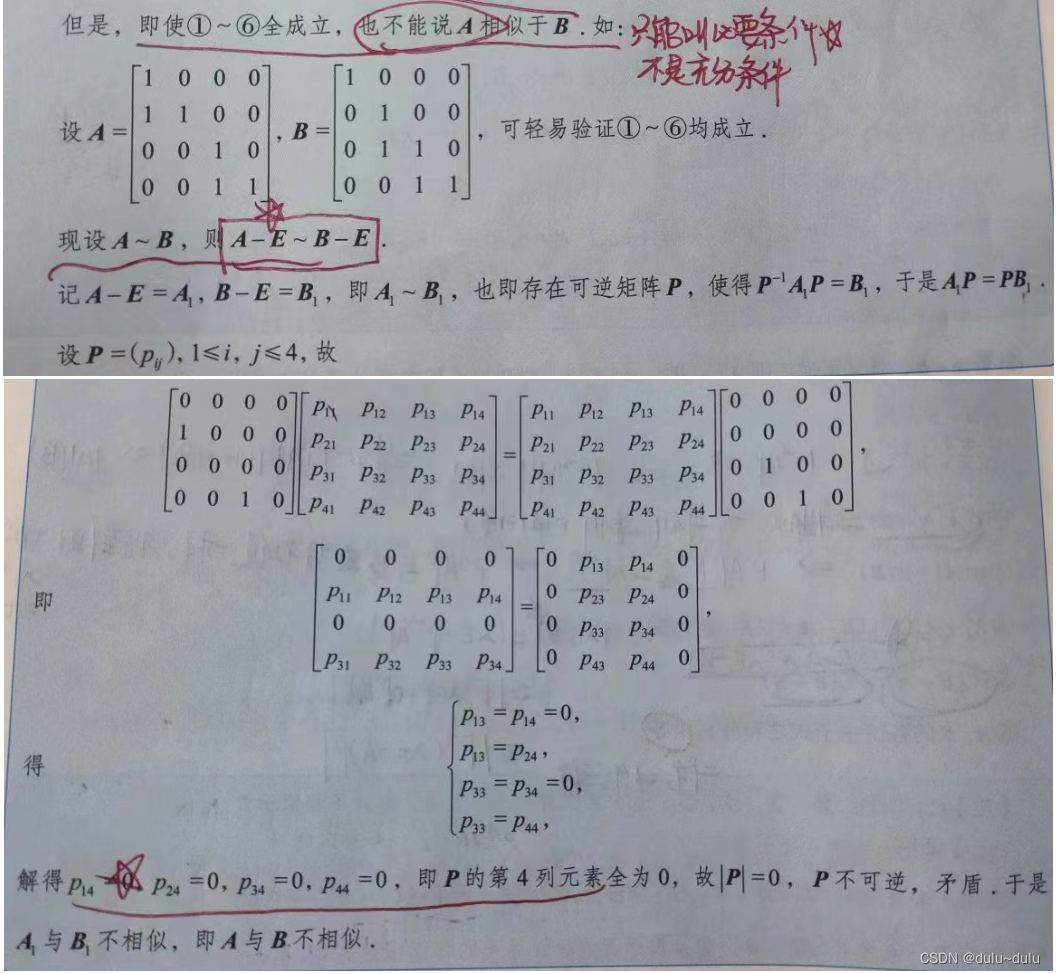 但是，即使①~⑥全成立，也不能说A相似于B．如：只能叫必要条件
不是充分条件
设A=[1 0 0 0; 1 1 0 0; 0 0 1 0; 0 0 1 1]，B=[1 0 0 0; 0 1 0 0; 0 1 1 0; 0 0 1 1]，可轻易验证①~⑥均成立．
现设A~B，则A-E~B-E．
记A-E=A₁，B-E=B₁，即A₁~B₁，也即存在可逆矩阵P，使得P⁻¹A₁P=B₁，于是A₁P=PB₁．
设P=(pᵢⱼ)，1≤i，j≤4，故
[0 0 0 0; 1 0 0 0; 0 0 0 0; 0 0 1 0][p₁₁ p₁₂ p₁₃ p₁₄; p₂₁ p₂₂ p₂₃ p₂₄; p₃₁ p₃₂ p₃₃ p₃₄; p₄₁ p₄₂ p₄₃ p₄₄]=[p₁₁ p₁₂ p₁₃ p₁₄; p₂₁ p₂₂ p₂₃ p₂₄; p₃₁ p₃₂ p₃₃ p₃₄; p₄₁ p₄₂ p₄₃ p₄₄][0 0 0 0; 0 0 0 0; 0 1 0 0; 0 0 1 0]，
即 [0 0 0 0; p₁₁ p₁₂ p₁₃ p₁₄; 0 0 0 0; p₃₁ p₃₂ p₃₃ p₃₄]=[0 p₁₃ p₁₄ 0; 0 p₂₃ p₂₄ 0; 0 p₃₃ p₃₄ 0; 0 p₄₃ p₄₄ 0]，
得
p₁₃=p₁₄=0，
p₁₃=p₂₄，
p₃₃=p₃₄=0，
p₃₃=p₄₄，
解得p₁₄=0，p₂₄=0，p₃₄=0，p₄₄=0，即P的第4列元素全为0，故|P|=0，P不可逆，矛盾．于是
A₁与B₁不相似，即A与B不相似．
CSDN @dulu~dulu